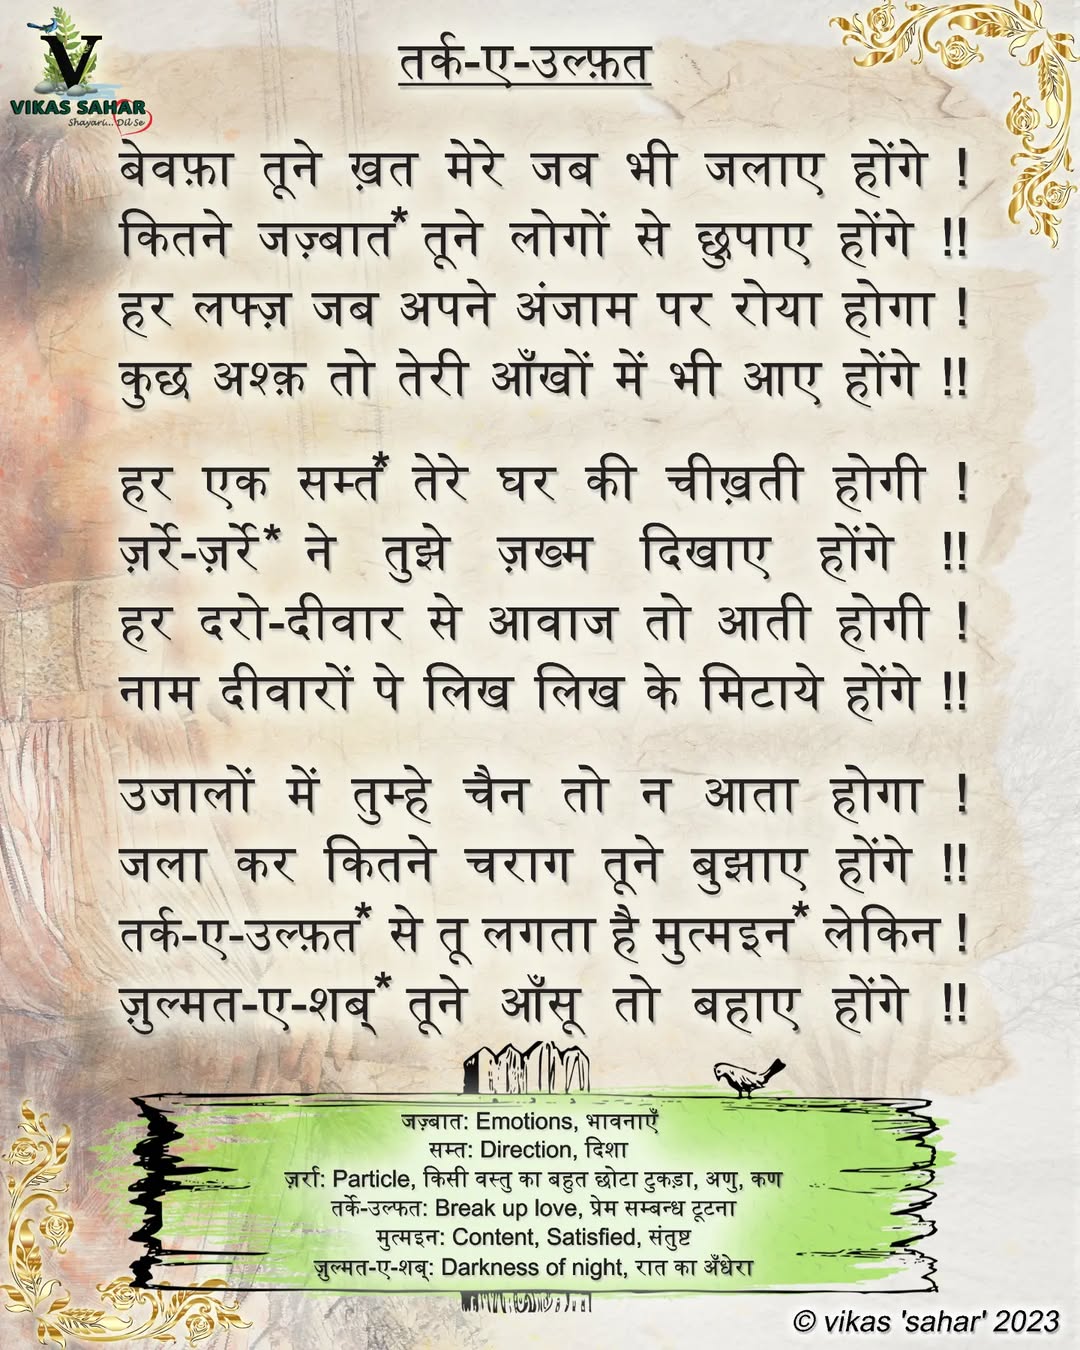 V
VIKAS SAHAR
Shayari... Dil Se
तर्क-ए-उल्फ़त
बेवफ़ा तूने ख़त मेरे जब भी जलाए होंगे !
कितने जज़्बात* तूने लोगों से छुपाए होंगे !!
हर लफ्ज़ जब अपने अंजाम पर रोया होगा !
कुछ अश्क़ तो तेरी आँखों में भी आए होंगे !!
हर एक सम्त* तेरे घर की चीख़ती होगी !
ज़र्रे-ज़र्रे* ने तुझे ज़ख्म दिखाए होंगे !!
हर दरो-दीवार से आवाज तो आती होगी !
नाम दीवारों पे लिख लिख के मिटाये होंगे !!
उजालों में तुम्हे चैन तो न आता होगा !
जला कर कितने चराग तूने बुझाए होंगे !!
तर्क-ए-उल्फ़त* से तू लगता है मुत्मइन* लेकिन !
ज़ुल्मत-ए-शब्* तूने आँसू तो बहाए होंगे !!
जज़्बात: Emotions, भावनाएँ
सम्त: Direction, दिशा
ज़र्रा: Particle, किसी वस्तु का बहुत छोटा टुकड़ा, अणु, कण
तर्के-उल्फत: Break up love, प्रेम सम्बन्ध टूटना
मुत्मइन: Content, Satisfied, संतुष्ट
ज़ुल्मत-ए-शब्: Darkness of night, रात का अँधेरा
© vikas 'sahar' 2023